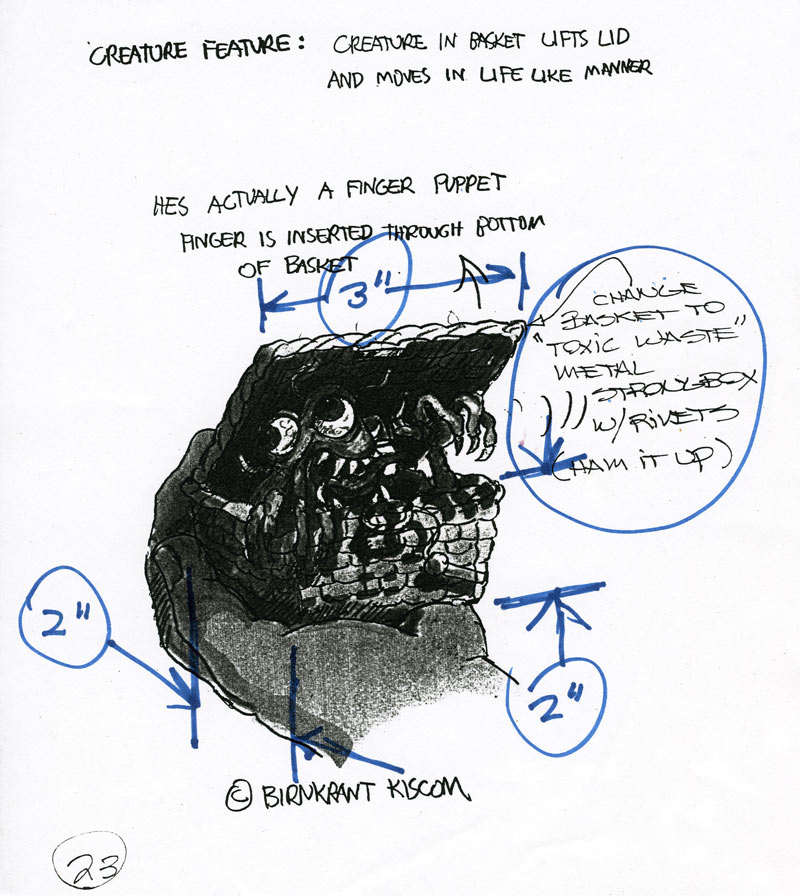 CREATURE FEATURE: CREATURE IN BASKET LIFTS LID
AND MOVES IN LIFE LIKE MANNER
HES ACTUALLY A FINGER PUPPET
FINGER IS INSERTED THROUGH BOTTOM
OF BASKET
3"
CHANGE
BASKET TO
"TOXIC WASTE"
METAL
STRONG-BOX
W/RIVETS
(HAM IT UP)
2"
2"
© BIRNKRANT KISCOM
23